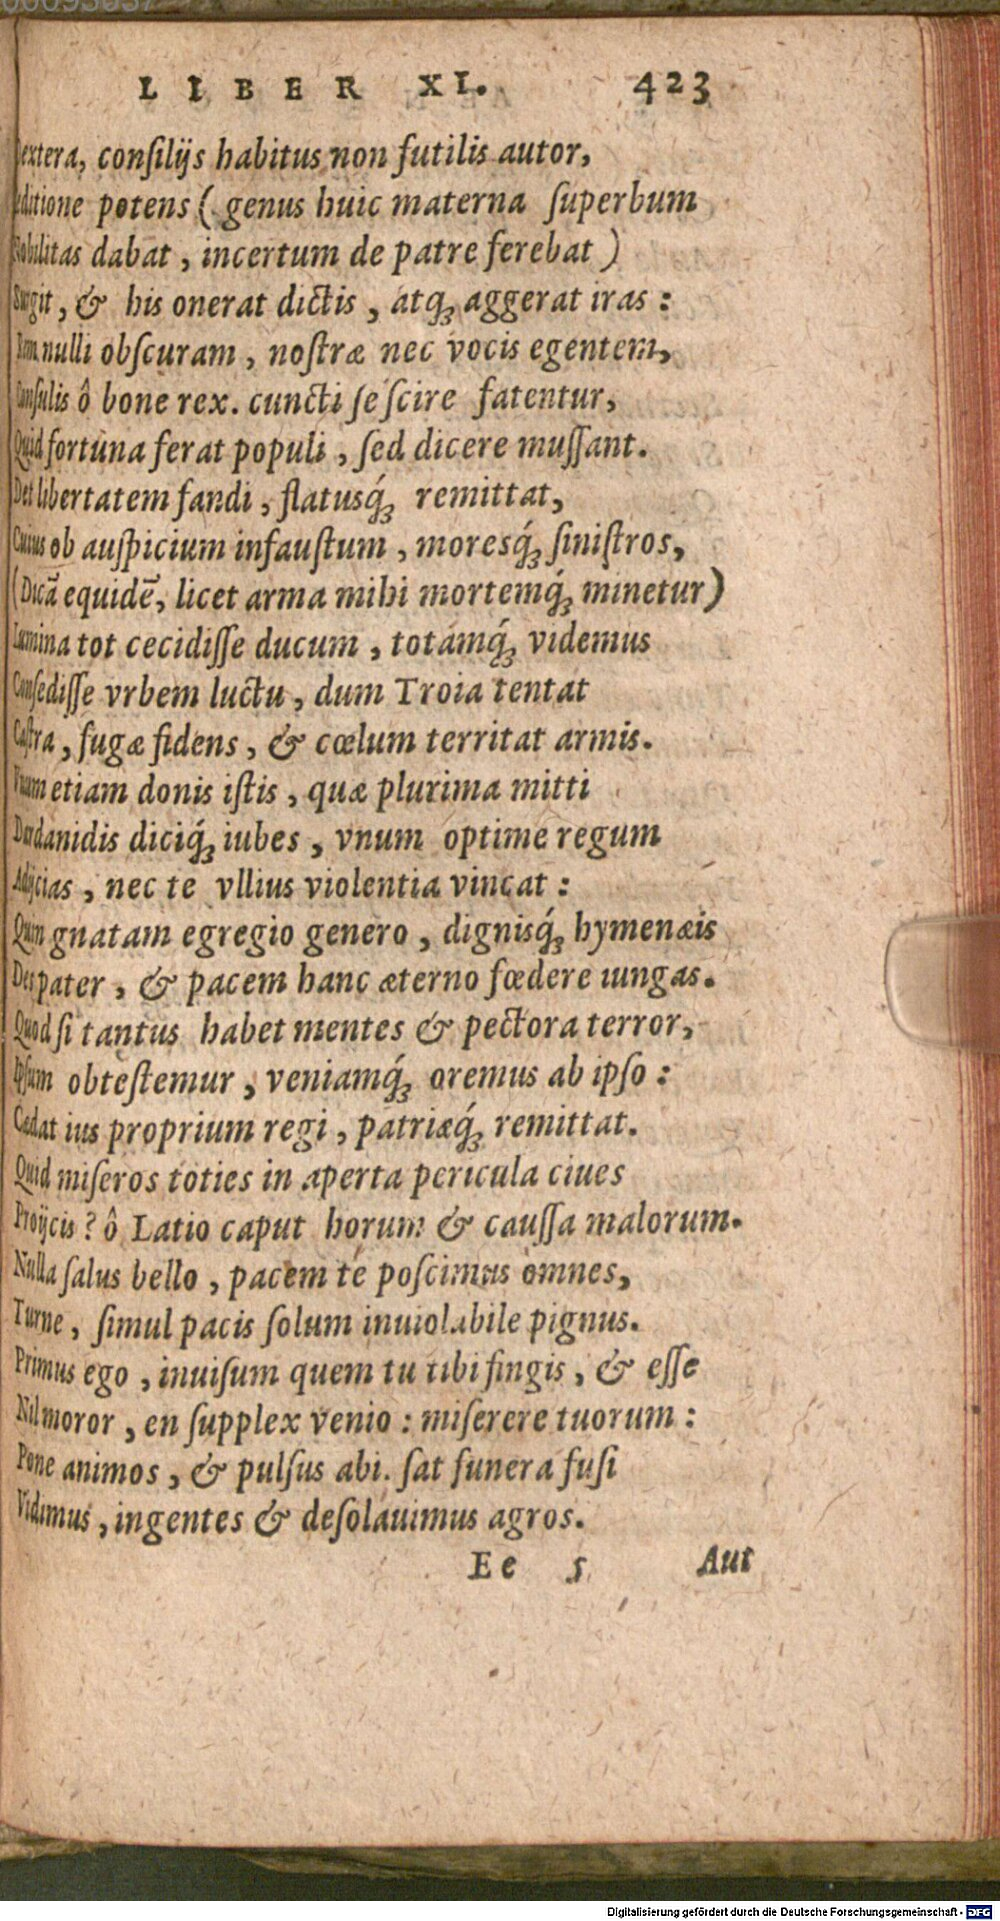 LIBER XI. 423
dextera, consilijs habitus non futilis autor,
seditione potens ( genus huic materna superbum
Nobilitas dabat, incertum de patre ferebat )
Surgit, & his onerat dictis, atq; aggerat iras:
Rem nulli obscuram, nostræ nec vocis egentem,
Consulis ô bone rex. cuncti se scire fatentur,
Quid fortuna ferat populi, sed dicere mussant.
Det libertatem fandi, flatusq́; remittat,
Cuius ob auspicium infaustum, moresq́; sinistros,
(Dicā equidē, licet arma mihi mortemq́; minetur)
Lumina tot cecidisse ducum, totamq́; videmus
Consedisse vrbem luctu, dum Troia tentat
Castra, fugæ fidens, & cœlum territat armis.
Vnum etiam donis istis, quæ plurima mitti
Dardanidis diciq́; iubes, vnum optime regum
Adijcias, nec te vllius violentia vincat:
Quin gnatam egregio genero, dignisq́; hymenæis
Des pater, & pacem hanc æterno fœdere iungas.
Quod si tantus habet mentes & pectora terror,
Ipsum obtestemur, veniamq́; oremus ab ipso:
Cedat ius proprium regi, patriæq́; remittat.
Quid miseros toties in aperta pericula ciues
Proijcis? ô Latio caput horum & caussa malorum.
Nulla salus bello, pacem te poscimus omnes,
Turne, simul pacis solum inuiolabile pignus.
Primus ego, inuisum quem tu tibi fingis, & esse
Nil moror, en supplex venio: miserere tuorum:
Pone animos, & pulsus abi. sat funera fusi
Vidimus, ingentes & desolauimus agros.
Ee 5 Aut
Digitalisierung gefördert durch die Deutsche Forschungsgemeinschaft - DFG